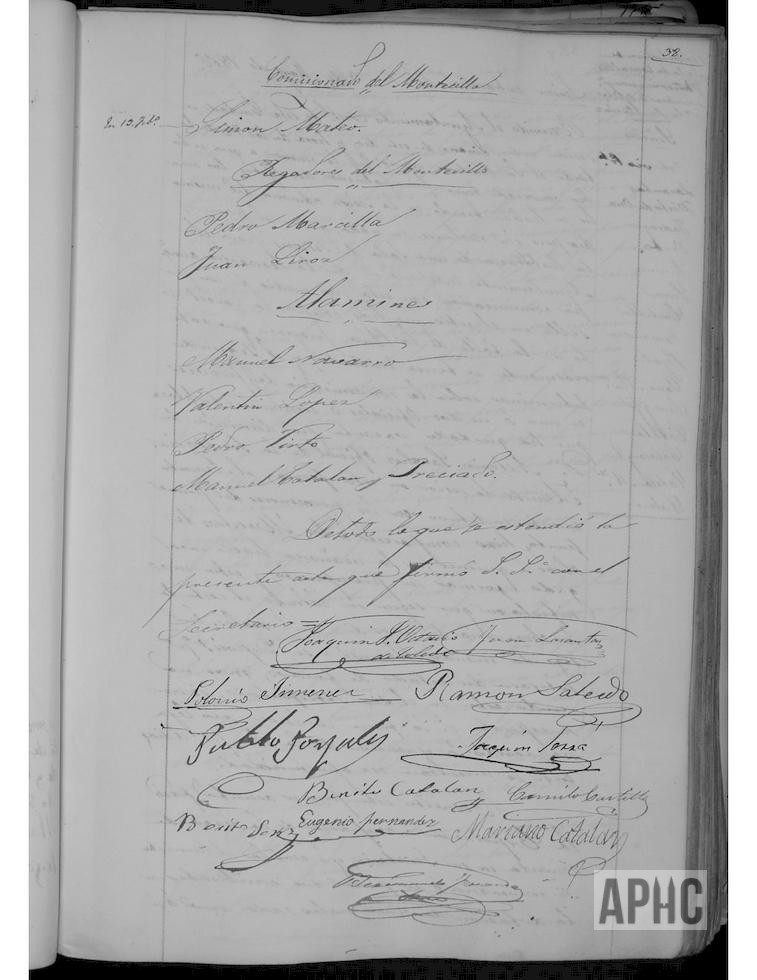 38.
Comisionado del Montecillo
En 13. Feb.o
Simon Mateo.
Regadores del Montecillo
Pedro Marcilla
Juan Liroz
Alamines
Manuel Navarro
Valentin Lopez
Pedro Tirto
Manuel Catalan y Preciado.
De todo lo que se estendió la
presente acta que firmó S. S.a con el
Secretario =
Joaquin
de Toledo
Juan
Jimenez
Ramon Salcedo
Pablo
Joaquin
Benito Catalan
Camilo Castilla
Benito Sanz
Eugenio fernandez
Mariano Catalán
APHC